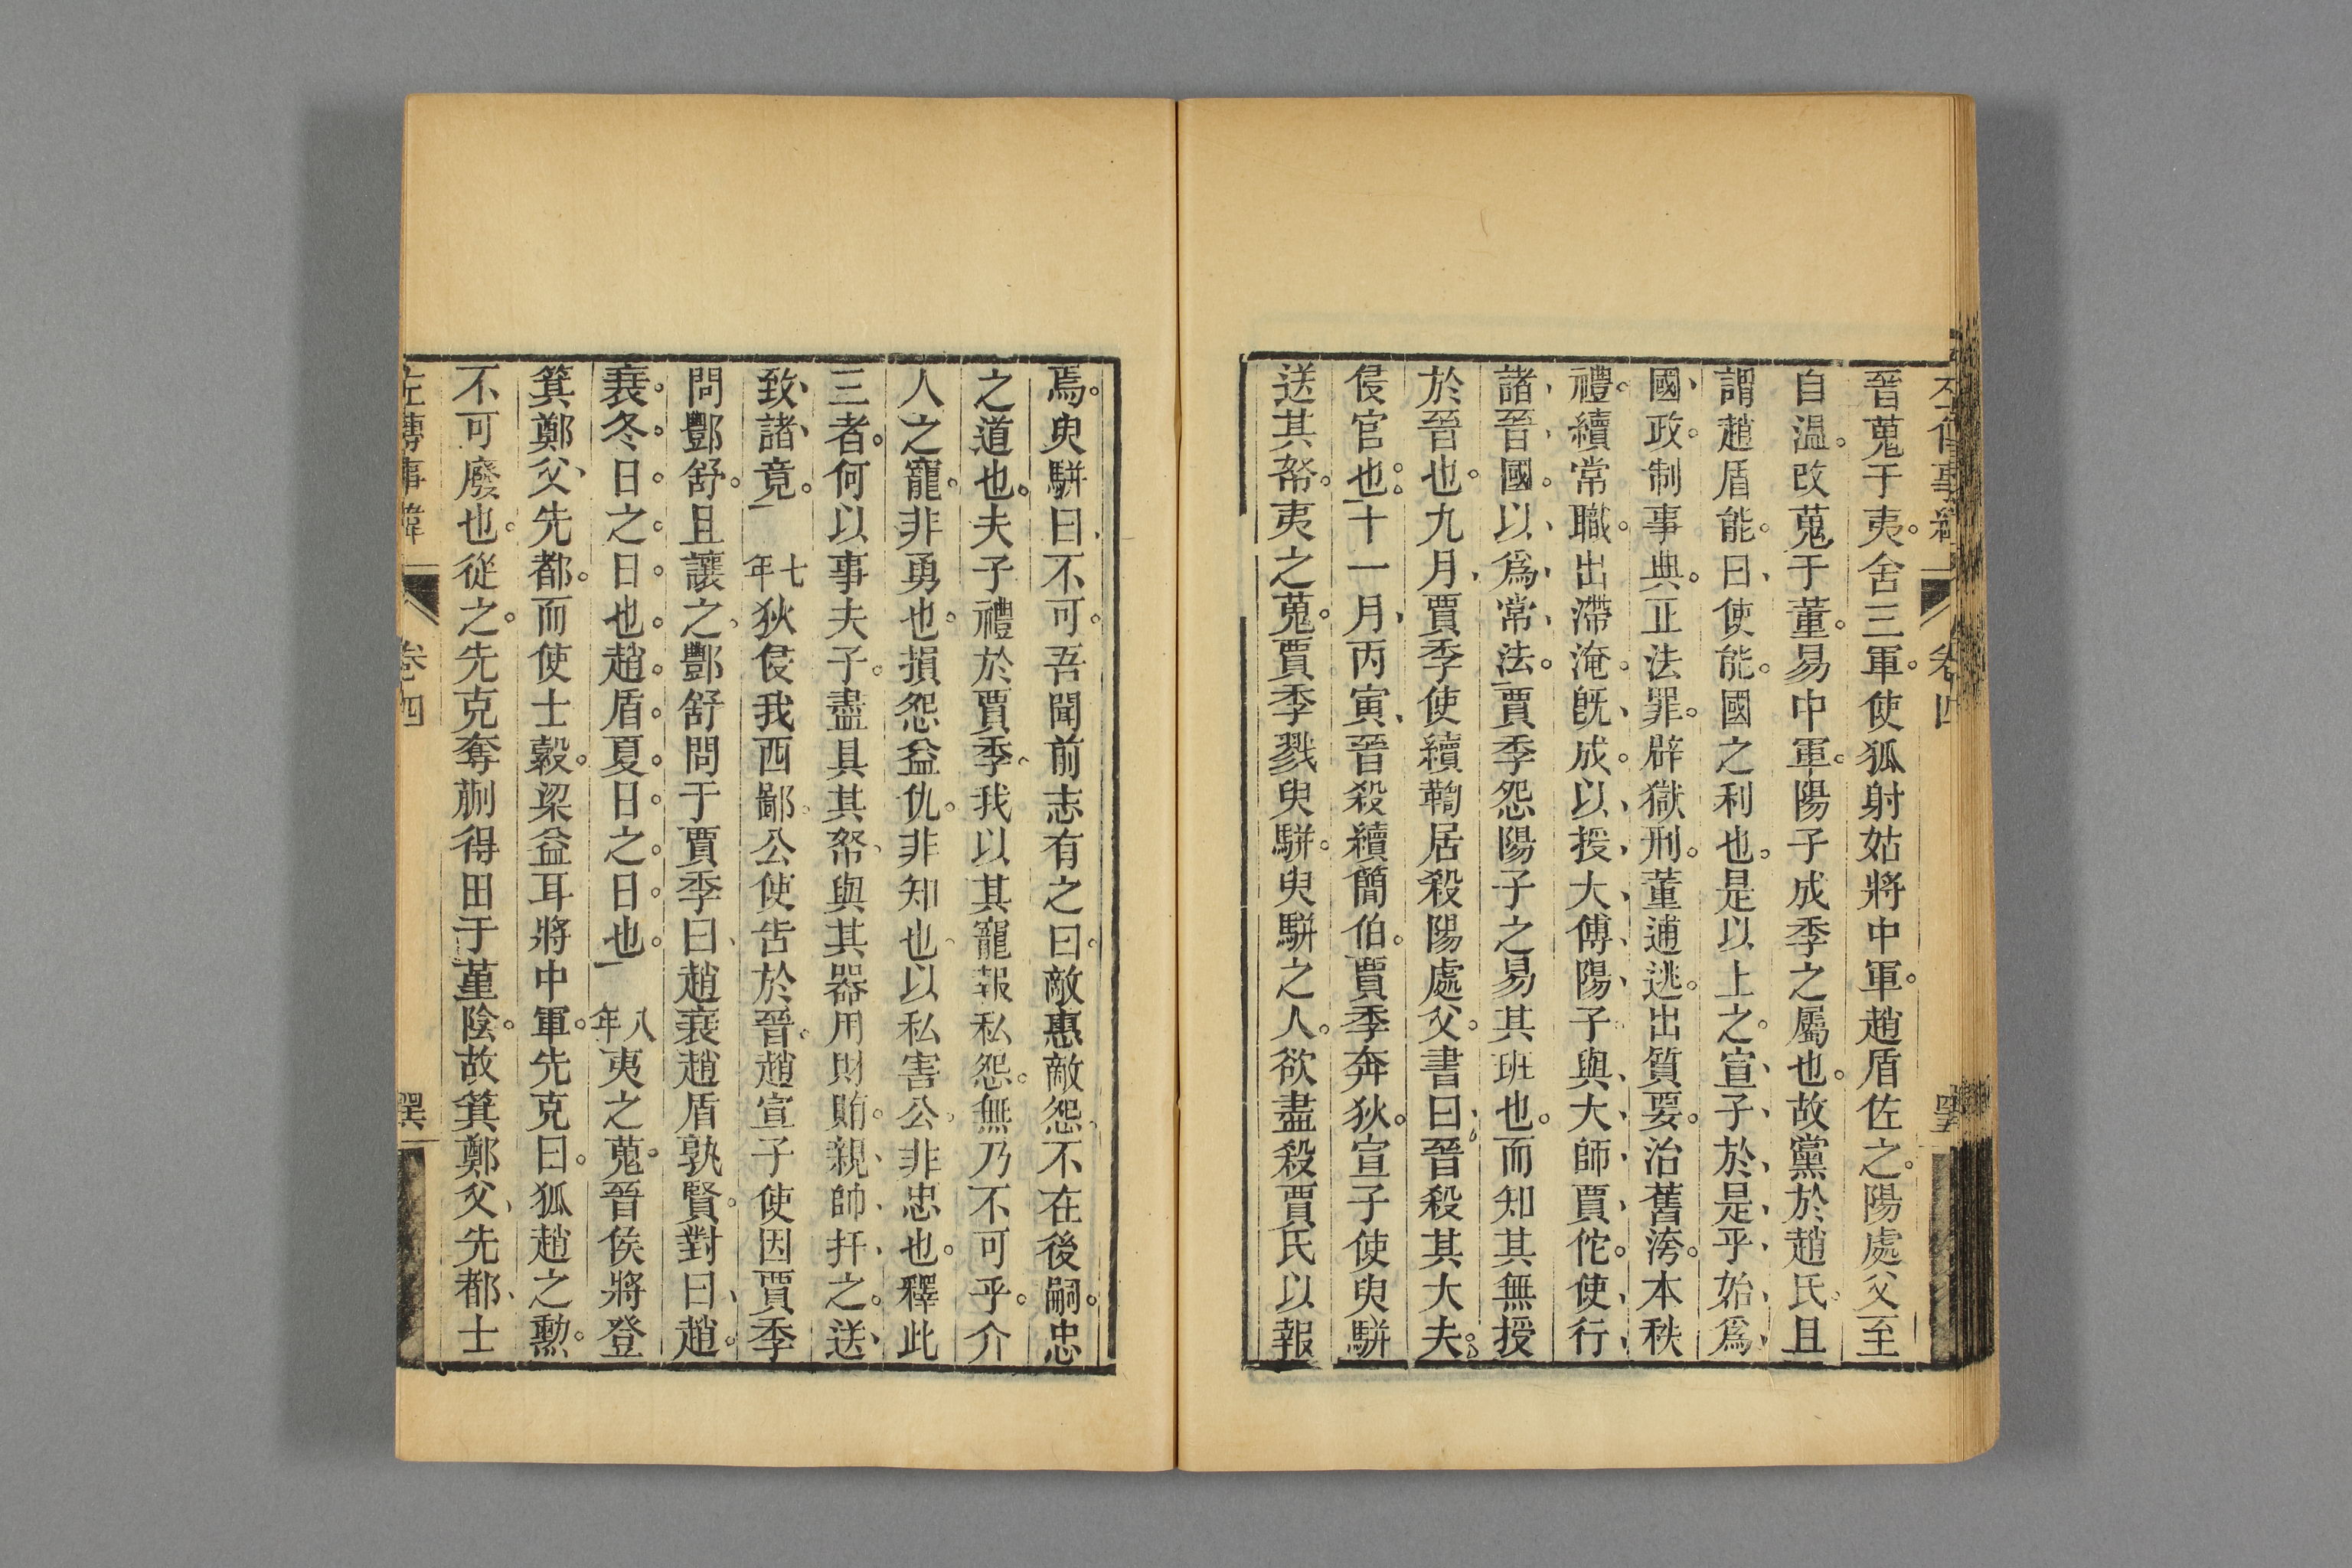 晉蒐于夷。舍三軍。使狐射姑將中軍。趙盾佐之。陽處父至
自溫。改蒐于董。易中軍。陽子成季之屬也。故黨於趙氏。且
謂趙盾能。曰、使能。國之利也。是以上之。宣子、於是乎、始爲、
國、政。制事典。正法罪。辟獄刑。董逋逃。出質要。治舊洿。本秩
禮。續常職。出滯淹。旣、成。以、授、大、傅、陽、子、與、大、師、賈、佗。使、行、
諸、晉、國。以、爲、常、法。賈季怨陽子之易其班也。而知其無授
於晉也。九月、賈季使續鞫居殺陽處父。書曰、晉殺其大夫。
侵官也。十一月、丙寅、晉殺續簡伯。賈季奔狄。宣子使臾駢
送其帑。夷之蒐。賈季戮臾駢。臾駢之人。欲盡殺賈氏以報
焉。臾駢曰、不可。吾聞前志有之曰。敵惠敵怨、不在後嗣。忠
之道也。夫子禮於賈季、我以其寵報私怨。無乃不可乎。介
人之寵。非勇也。損怨益仇。非知也、以私害公、非忠也。釋此
三者。何以事夫子。盡具其帑、與其器用財賄。親、帥、扞、之。送、
致、諸、竟。七年狄侵我西鄙、公使告於晉。趙宣子使因賈季
問酆舒。且讓之、酆舒問于賈季曰、趙衰趙盾孰賢。對曰、趙。
衰。冬。日。之。日。也。趙。盾。夏。日。之。日。也。八年夷之蒐。晉侯將登
箕鄭父、先都。而使士縠。梁益耳將中軍。先克曰。狐趙之勳。
不可廢也。從之。先克奪蒯得田于堇陰。故箕鄭父、先都、士
左傳事緯
卷四